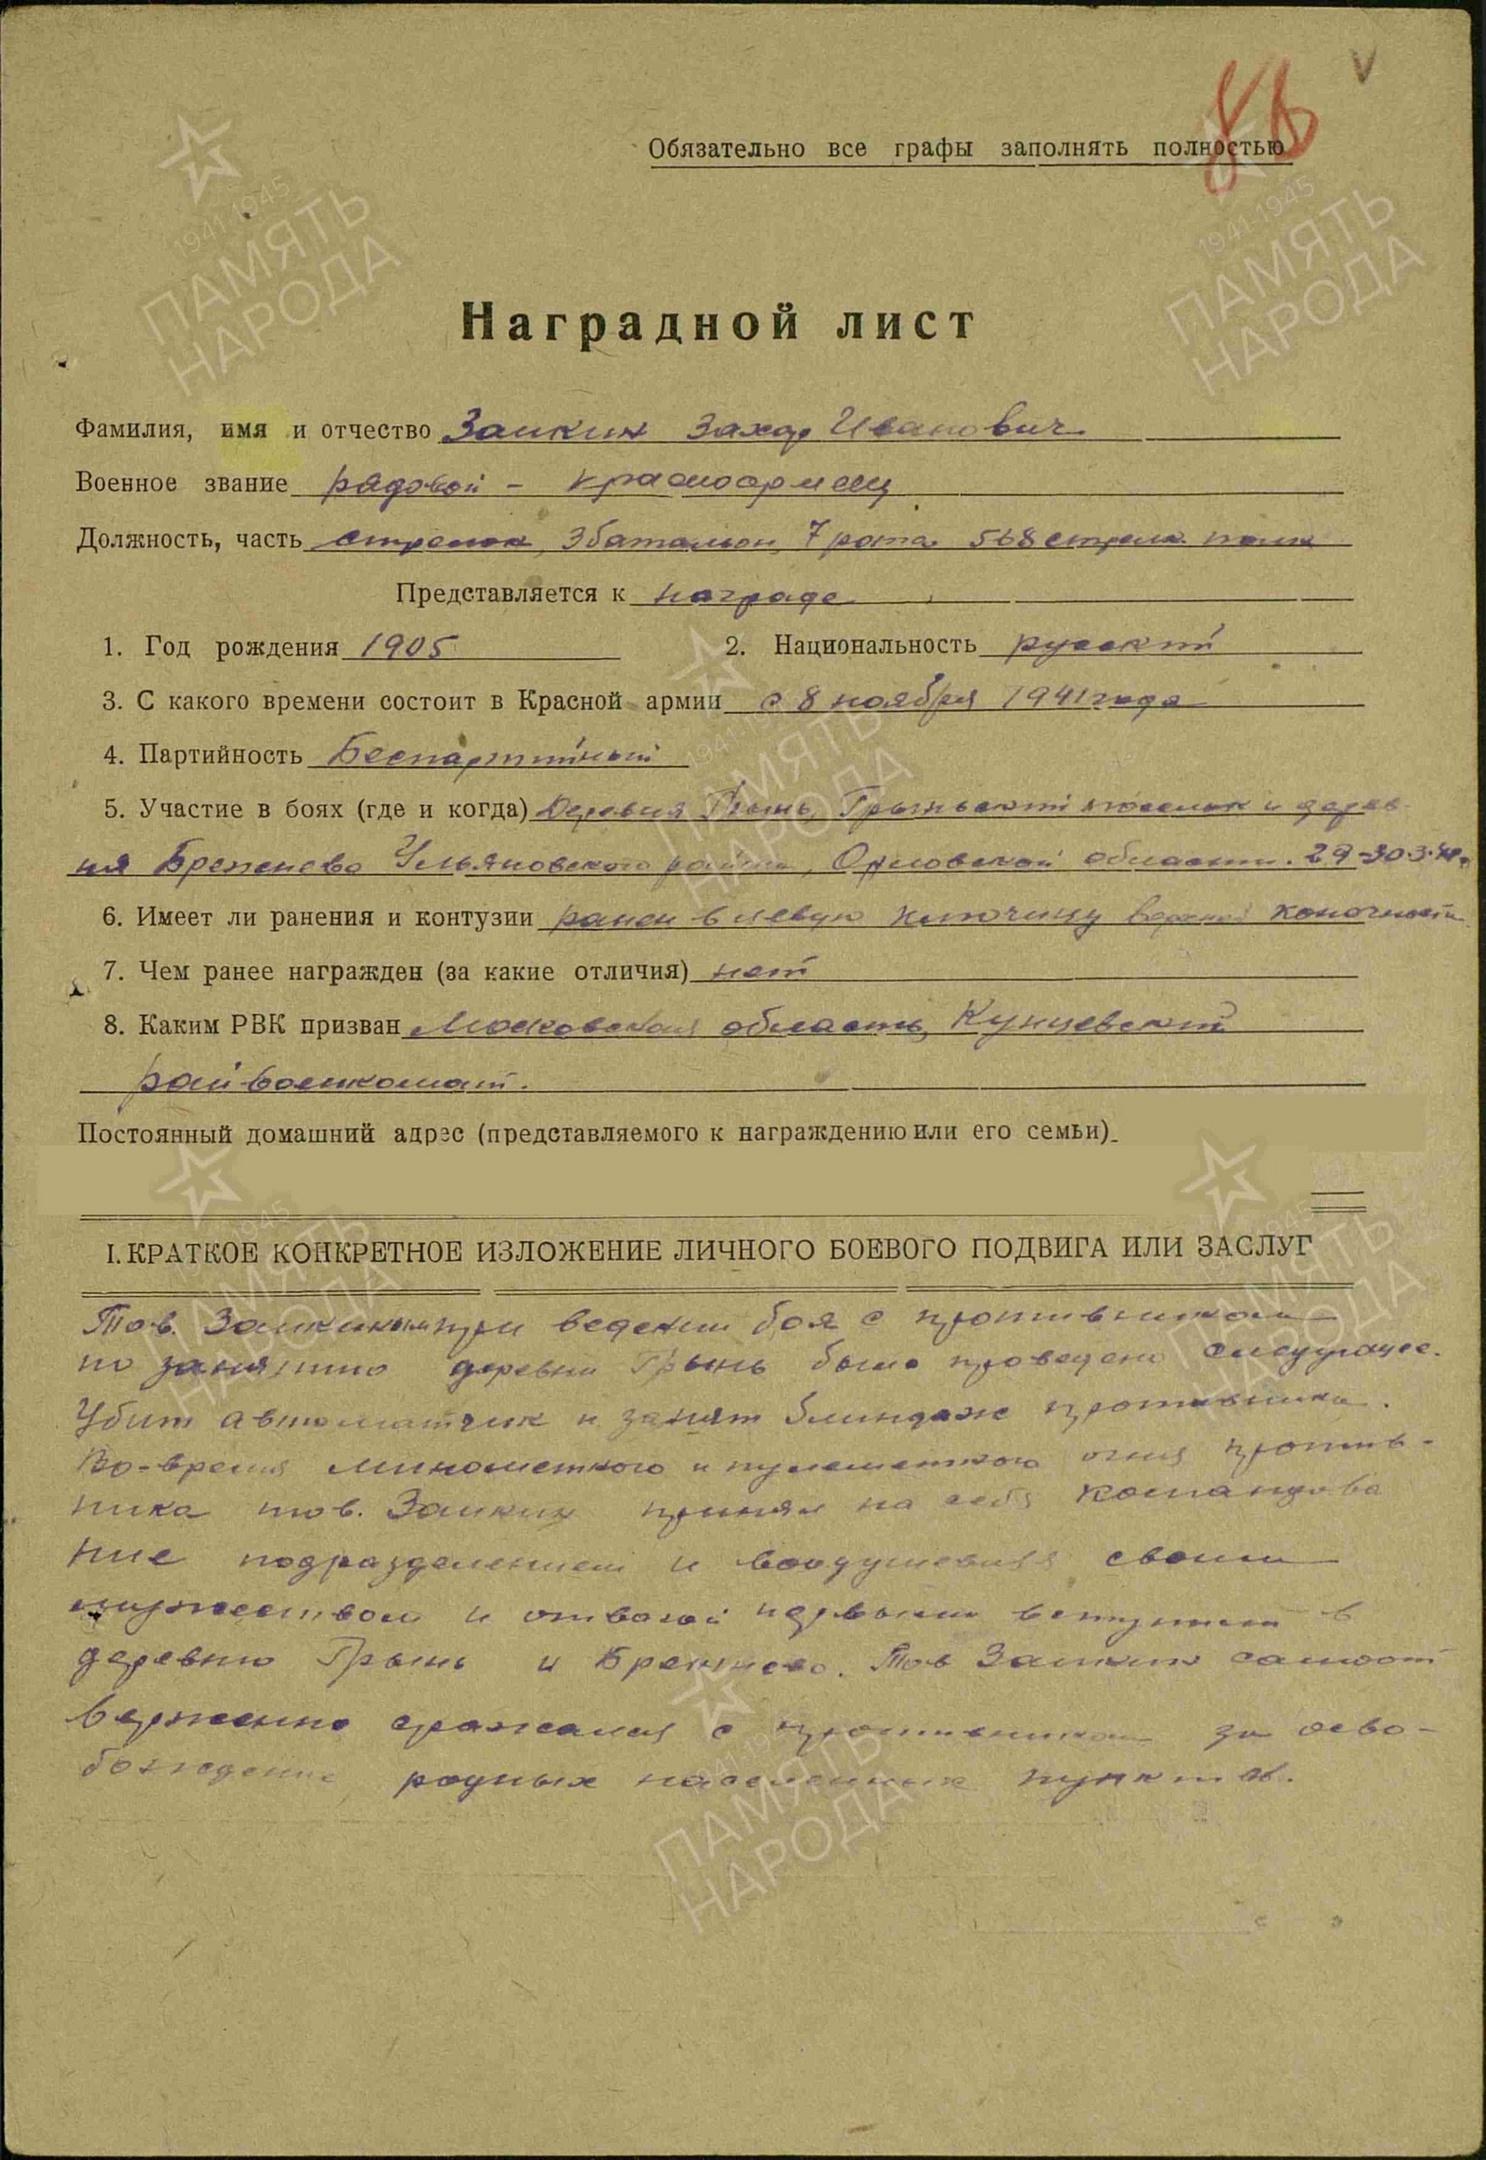 86
V
Обязательно все графы заполнять полностью
Наградной лист
Фамилия, имя и отчество Заикин Захар Иванович
Военное звание рядовой - красноармеец
Должность, часть стрелок, 3 батальон, 7 рота 568 стрелк. полк
Представляется к награде
1. Год рождения 1905 2. Национальность русский
3. С какого времени состоит в Красной армии с 8 ноября 1941 года
4. Партийность Беспартийный
5. Участие в боях (где и когда) Деревня Грынь, Грыньский поселок и дерев-
ня Брежнево Ульяновского района, Орловской области. 29-30.3.42.
6. Имеет ли ранения и контузии ранен в левую ключицу верхней конечности
7. Чем ранее награжден (за какие отличия) нет
8. Каким РВК призван Московская область, Кунцевский
райвоенкомат.
Постоянный домашний адрес (представляемого к награждению или его семьи)
I. КРАТКОЕ КОНКРЕТНОЕ ИЗЛОЖЕНИЕ ЛИЧНОГО БОЕВОГО ПОДВИГА ИЛИ ЗАСЛУГ
Тов. Заикиным при ведении боя с противником
по занятию деревни Грынь было проведено следующее.
Убит автоматчик и занят блиндаж противника.
Во-время минометного и пулеметного огня против-
ника тов. Заикин принял на себя командова
ние подразделением и воодушевляя своим
мужеством и отвагой первым вступил в
деревню Грынь и Брежнево. Тов Заикин самоот
верженно сражался с противником за осво-
бождение родных населенных пунктов.
1941-1945
ПАМЯТЬ
НАРОДА